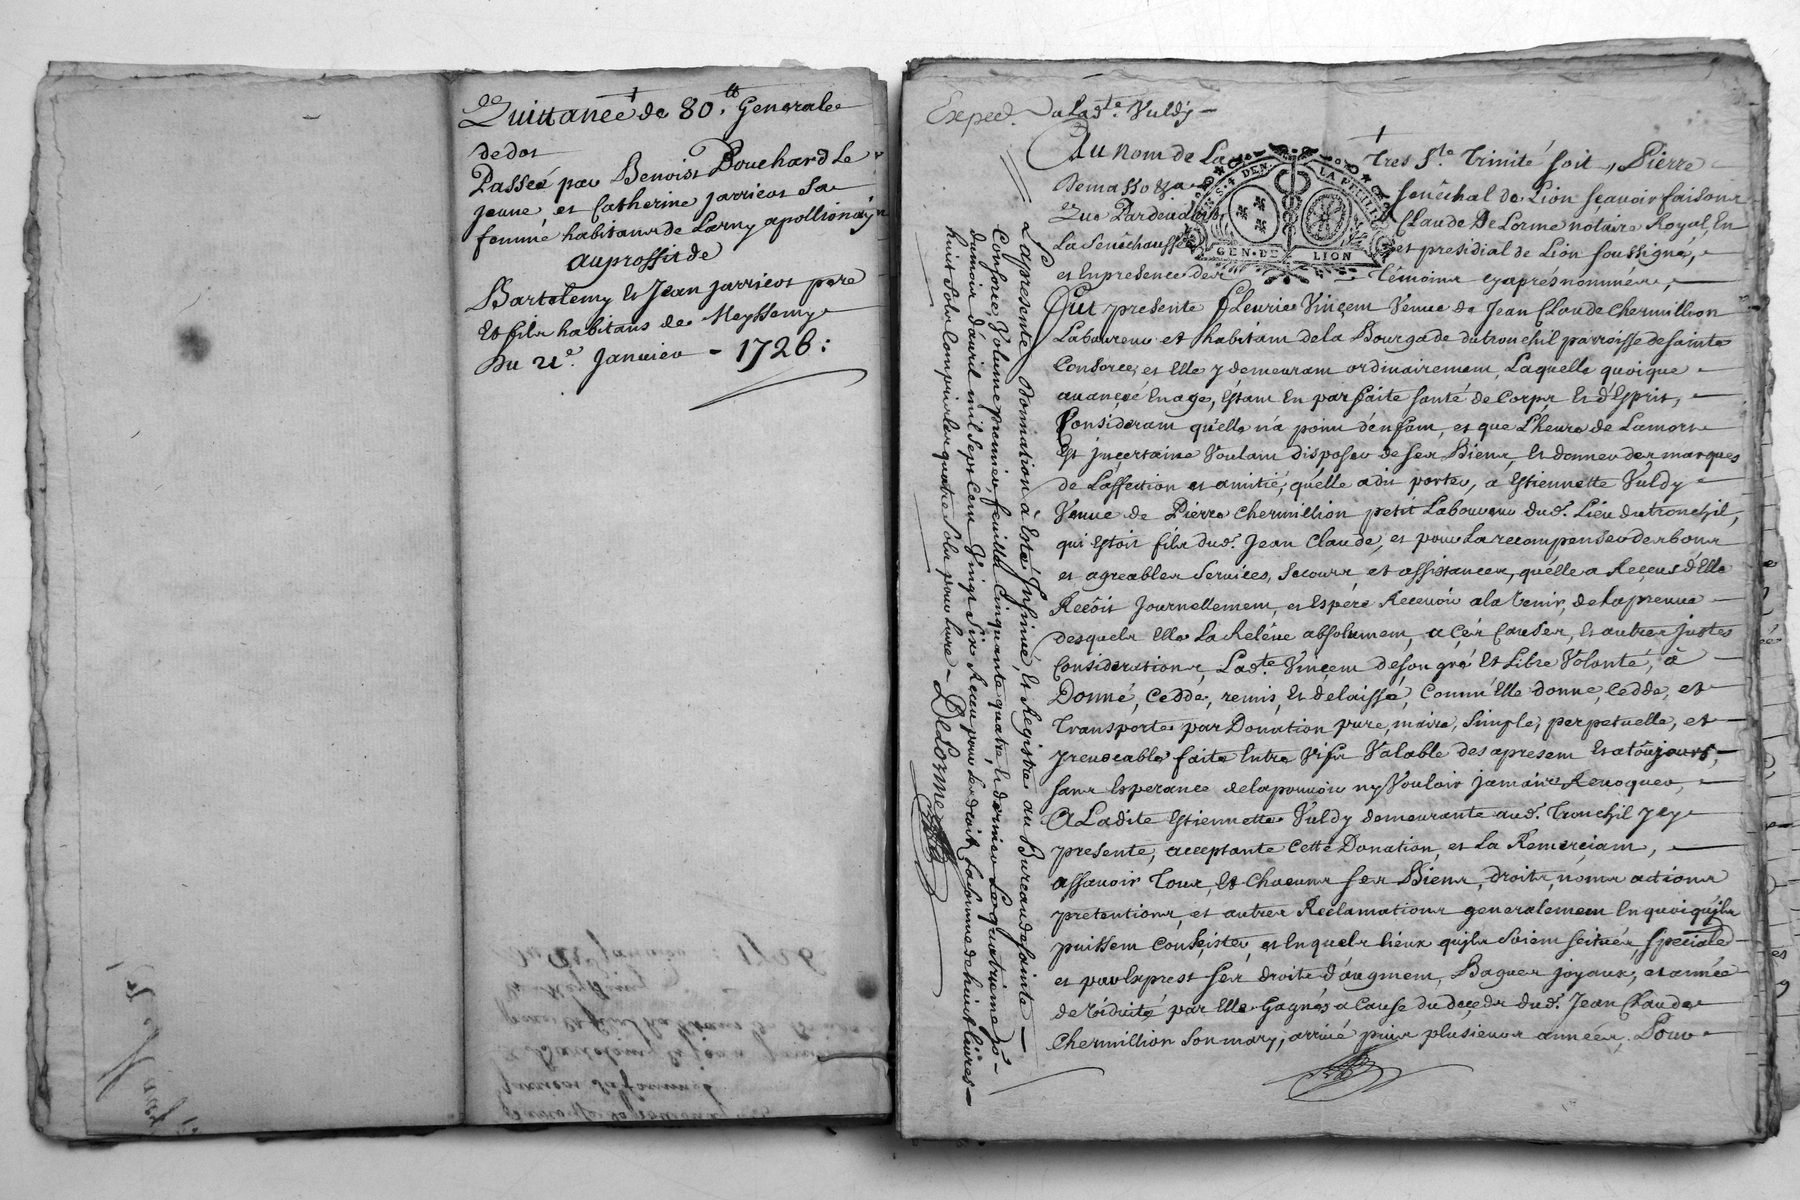 Quittance de 80.ᵗᵗ Generale
de dot
Passée par Benoist Bouchard Le
jeune, et Catherine jarricot sa
femme habitans de Larny apollionay
au proffit de
Bartelemy et Jean jarricot pere
et fils habitans de Meyssemy
Du 21e. Janvier - 1726:
Exped. a Lad.te Vuldy -
Au nom de La Tres S.te Trinité soit, Pierre
Demassoza senêchal de Lion sçavoir faisons
Que Pardevant Claude De Lorme notaire Royal, En
La Senêchaussée et presidial de Lion soussigné,
et En presence des Témoins cyaprés nommés,
GEN. DE LION
Fut presente Fleurie Vinçent Veuve de Jean Claude Chermillion
Laboureur et habitant de la Bourgade du tronchil parroisse de sainte
Consorce, et Elle y demeurant ordinairement, Laquelle quoique
avancée En age, Étant En parfaite santé de corps Et d'Esprit,
Considerant qu'elle n'a point d'enfant, et que L'heure de La mort
Est jncertaine Voulant disposer de ses Biens, Et donner des marques
de L'affection et amitié, qu'elle a dit porter, a Estiennette Vuldy
Veuve de Pierre Chermillion petit Laboureur dud. Lieu du tronchil,
qui Estoit fils dud. Jean Claude, et pour La recompenser des bons
et agreables services, secours, et assistances, qu'elle a Reçeus d'Elle
Reçoit Journellement, et Espére Recevoir a la Venir, de la preuve
desquels Elle La Reléve absolument, a çes Causes, Et autres justes
Considerations, Lad.te Vinçent de son gré Et Libre Volonté, â
Donné, cedde, remis, Et delaissé, Comm'Elle donne, Cedde, et
Transporte par Donation pure, maire, simple, perpetuelle, et
jrevocable faite Entre Vifs Valable des apresent Et a toûjours,
sans Esperance de la pouvoir ny Vouloir jamais Revoquer,
A Ladite Estiennette Vuldy demeurante aud. Tronchil jcy
presente, acceptante cette Donation, et La Remerçiant,
assavoir Tous, Et Chacuns ses Biens, droits, noms actions
pretentions, et autres Reclamations generalement En quoi qu'jls
puissent Consçister, et En quels lieux qu'jls soient scitués, speciale
et par Exprest ses droits d'augment, Bagues joyaux, et année
de viduité par Elle Gagnés a Cause du deceds dud. Jean Claude
Chermillion son mary, arrivé puis plusieurs années, Pour
La presente donnation à Esté Insinué, Et Registré au Bureau de sainte
Consorce, Volume premier, feuillet Cinquante quatre, le dernier La quatrieme Jo.
du mois d'avril mil sept Cent Vingt Six Receu pour Les droits La somme de huit livres
huit sols Compris les quatre sols pour livre - DeLorme